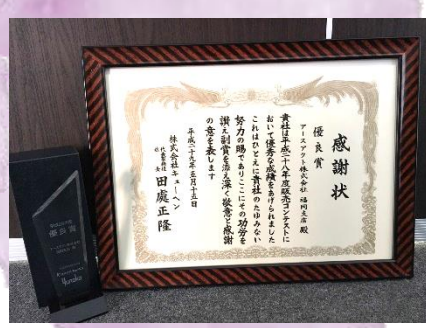 感謝状
優良賞
アースアクト株式会社 福岡支店 殿
貴社は平成二十八年度販売コンテストに
おいて優秀な成績をあげられました
これはひとえに貴社のたゆみない
努力の賜でありここにその功労を
讃え副賞を添え深く敬意と感謝
の意を表します
平成二十九年五月十五日
株式会社キューヘン
代表取締役
社長 田處正隆
優良賞